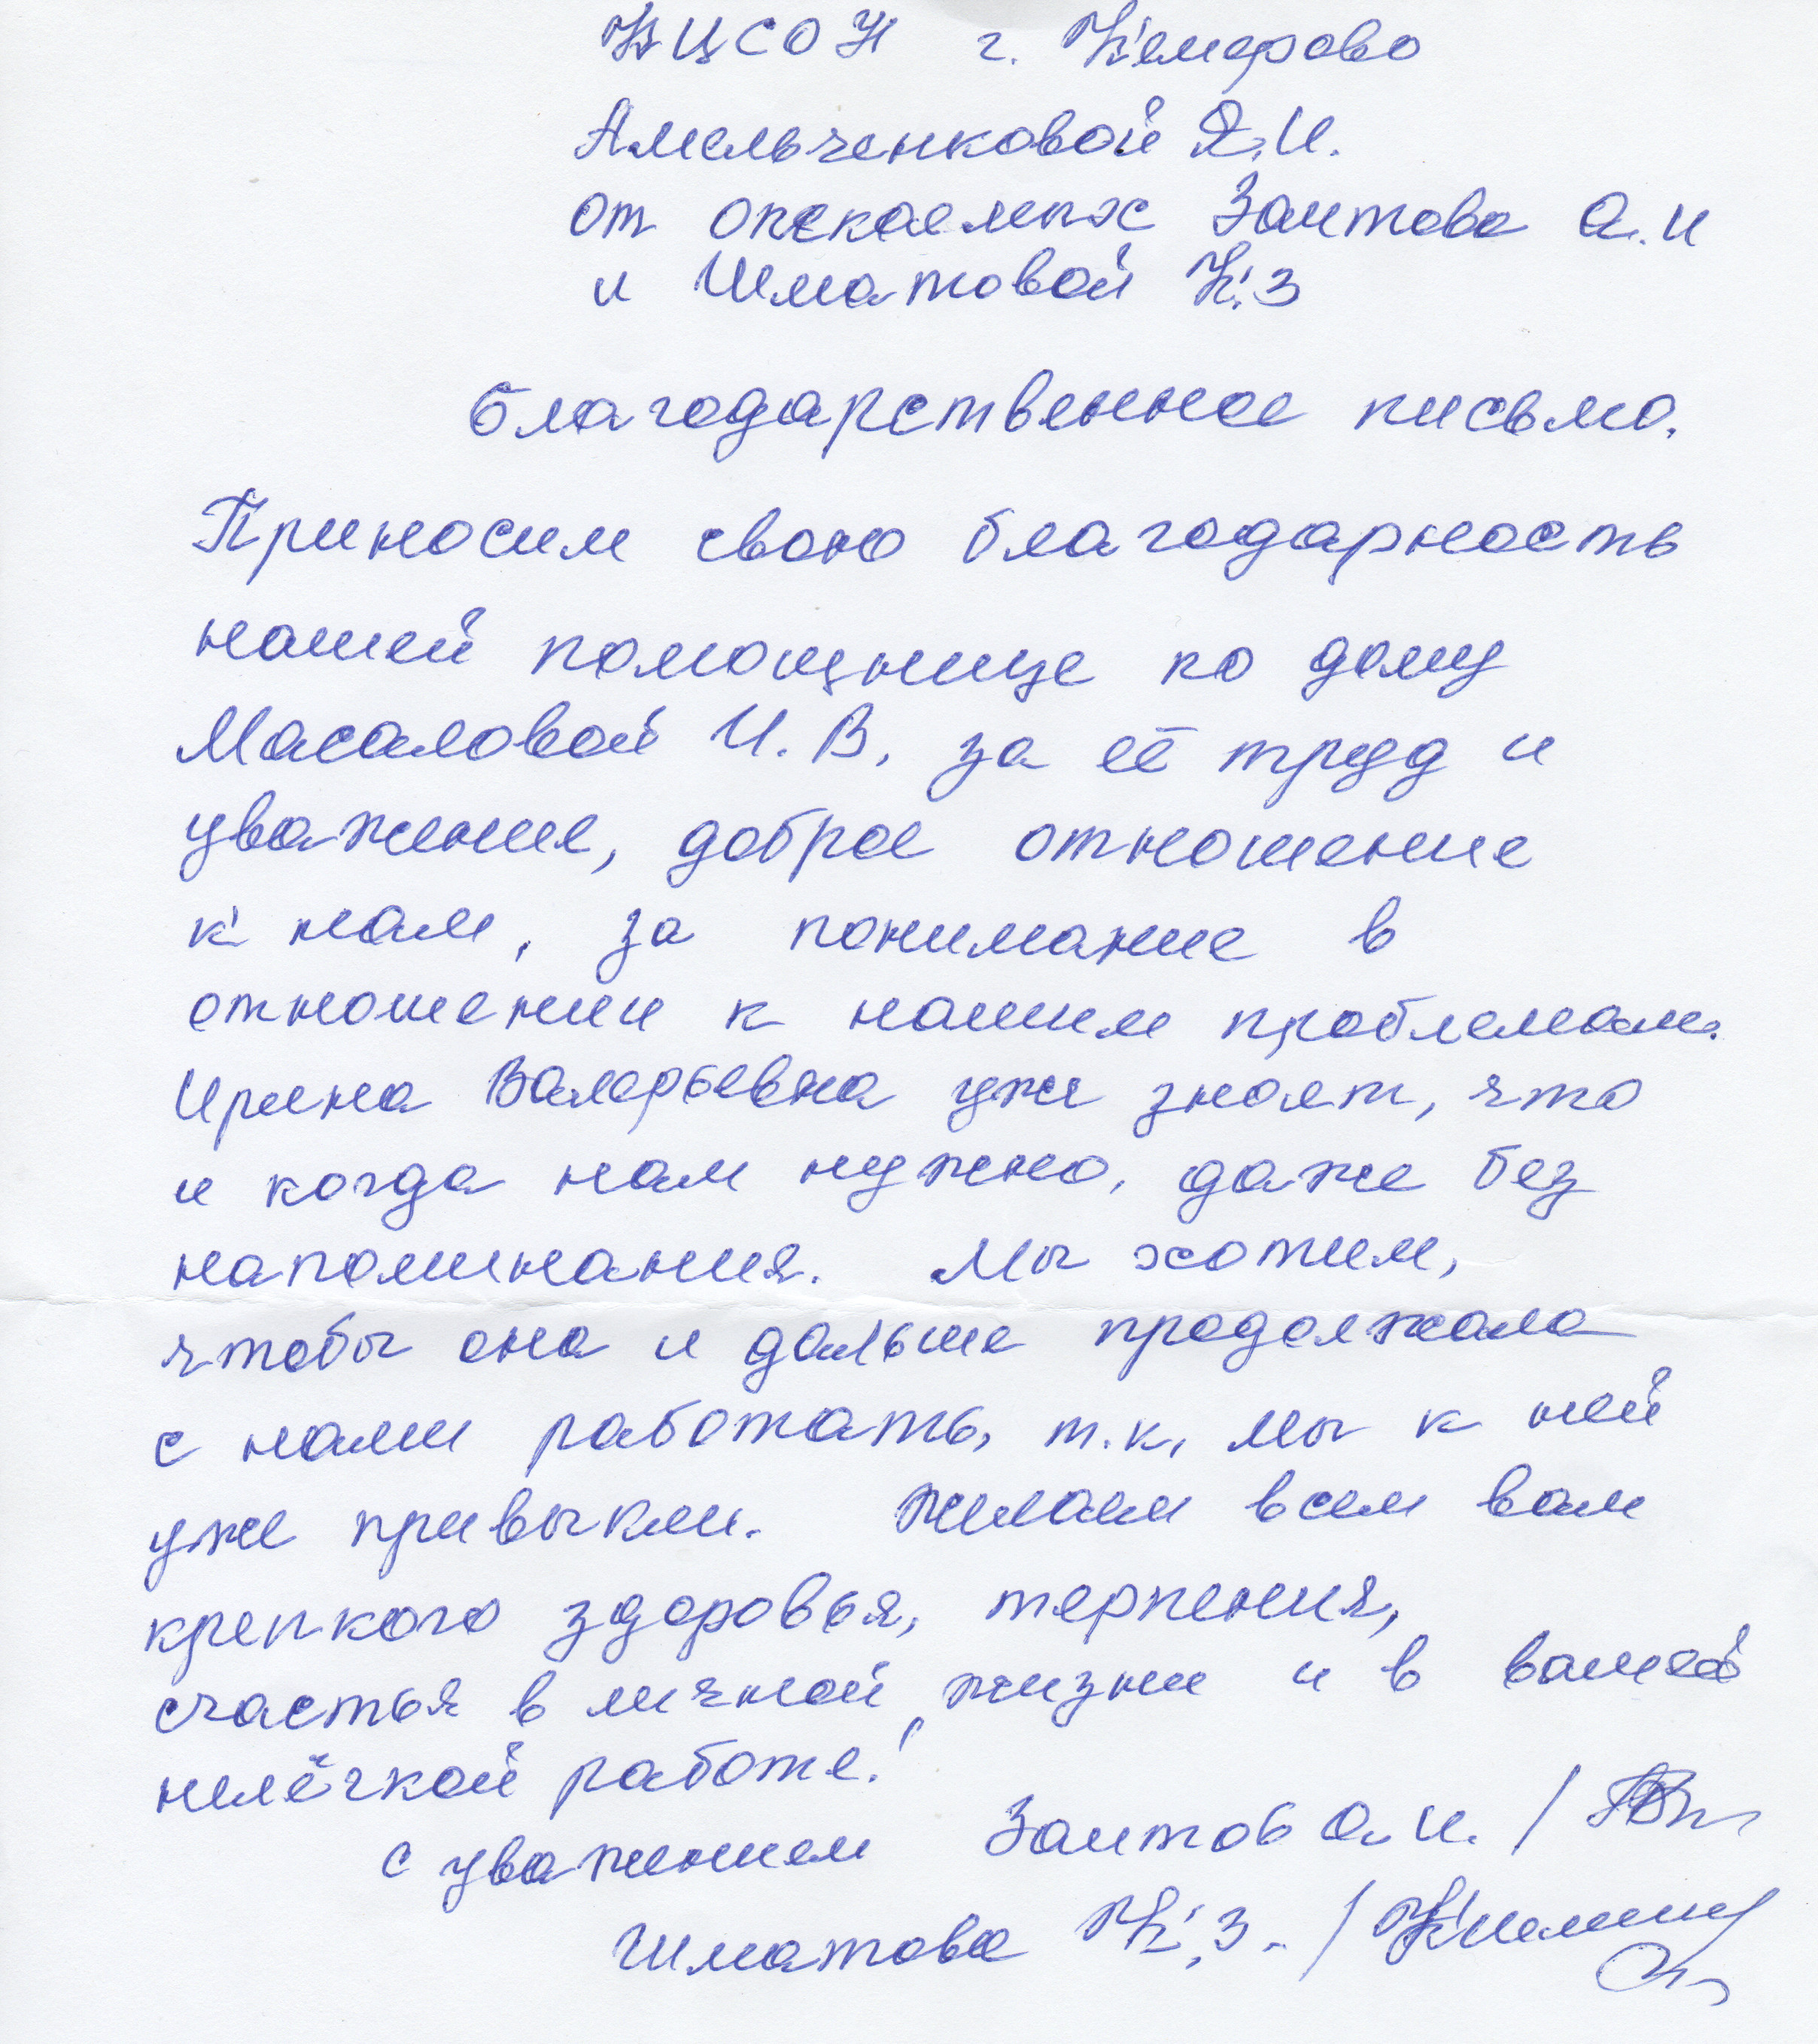 КЦСОН г. Кемерово
Амельченковой Я.И.
от опекаемых Заитова О.И
и Шматовой К.З
благодарственное письмо.
Приносим свою благодарность
нашей помощнице по дому
Масаловой И.В. за её труд и
уважение, доброе отношение
к нам, за понимание в
отношении к нашим проблемам.
Ирина Валерьевна уже знает, что
и когда нам нужно, даже без
напоминания. Мы хотим,
чтобы она и дальше продолжала
с нами работать, т.к. мы к ней
уже привыкли. Желаем всем вам
крепкого здоровья, терпения,
счастья в личной жизни и в вашей
нелёгкой работе!
с уважением Заитов О.И. /
Шматова К.З. /